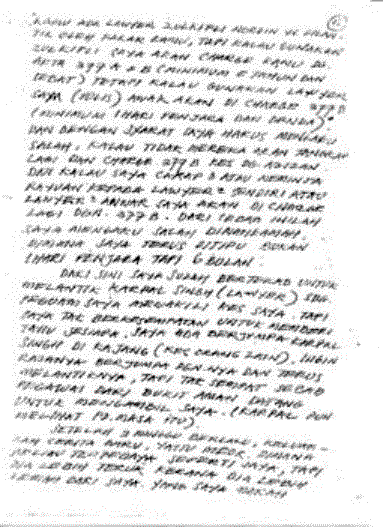 "KAMU ADA LAWYER ZULKIFLI NORDIN YG
OLEH KAMU, TAPI KALAU GUNAKAN
ZULKIFLI SAYA AKAN CHARGE KAMU DI-
377 A & B (MINIMUM 5 TAHUN DAN
SEBAT) TETAPI KALAU GUNAKAN LAWYER
SAYA (POLIS) AWAK AKAN DI CHARGE 377 B
(MINIMUM 1 HARI PENJARA DAN DENDA)"
DAN DENGAN SYARAT SAYA HARUS MENGAKU
SALAH. KALAU TIDAK MEREKA AKAN
LAGI DAN CHARGE 377 B
DAN KALAU SAYA CAKAP ATAU MEMINTA
KEPADA LAWYER² SENDIRI ATAU
LAWYER² ANWAR SAYA AKAN DI CHARGE
LAGI DGN. 377 B. DARI SEBAB INILAH
SAYA MENGAKU SALAH DIMAHKAMAH.
DIMANA SAYA TERUS DITIPU BUKAN
1 HARI PENJARA TAPI 6 BULAN.
DARI SINI SAYA SUDAH BERTEKAD UNTUK
MELANTIK KARPAL SINGH (LAWYER) SBG
PEGUAM SAYA MEWAKILI KES SAYA. TAPI
SAYA TAK BERKESEMPATAN UNTUK MEMBERI
TAHU SESIAPA. SAYA ADA BERJUMPA KARPAL
SINGH DI KAJANG (KES ORANG LAIN). INGIN
RASANYA BERJUMPA DGN.NYA DAN TERUS
MELANTIKNYA, TAPI TAK SEMPAT SEBAB
PEGAWAI DARI BUKIT AMAN DATANG
UNTUK MENGAMBIL SAYA. (KARPAL PUN
MELIHAT PD. MASA ITU).
SETELAH MINGGU BERLALU, KELUAR
CERITA BARU, YAITU MEOR, DIMANA
BELIAU TERPEDAYA SEPERTI SAYA, TAPI
DIA LEBIH TERUK KERANA DIA LEBIH
DARI SAYA. YANG SAYA